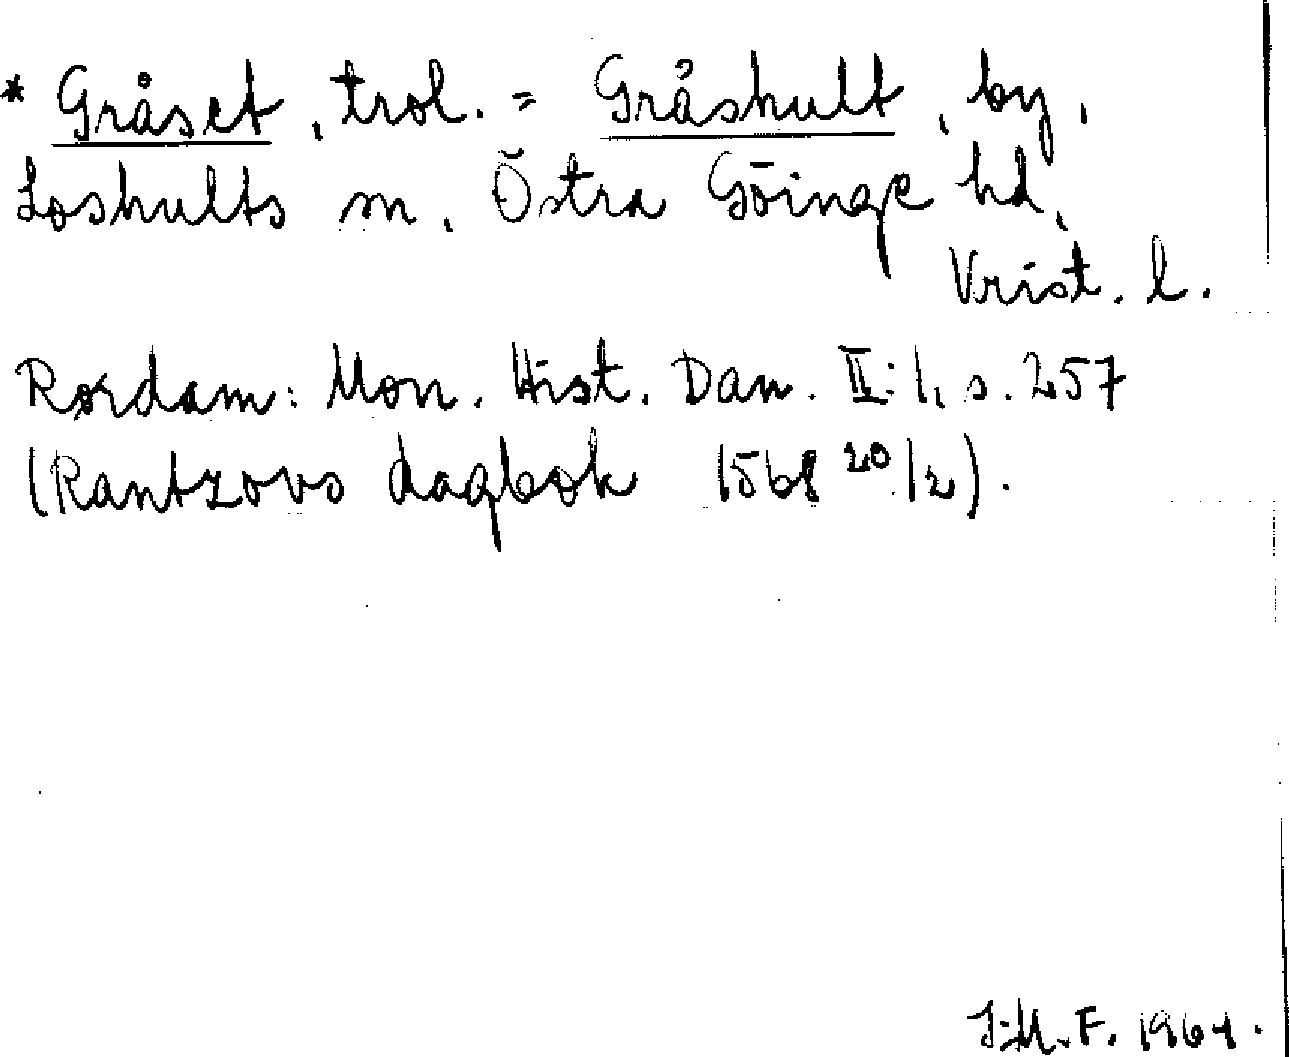 * Gråset, trol. = Gråshult, by,
Loshults sn, Östra Göinge hd,
Krist. l.
Rørdam: Mon. Hist. Dan. II:1, s. 257
(Rantzovs dagbok 1568 20/2).
I.-M. F. 1964.